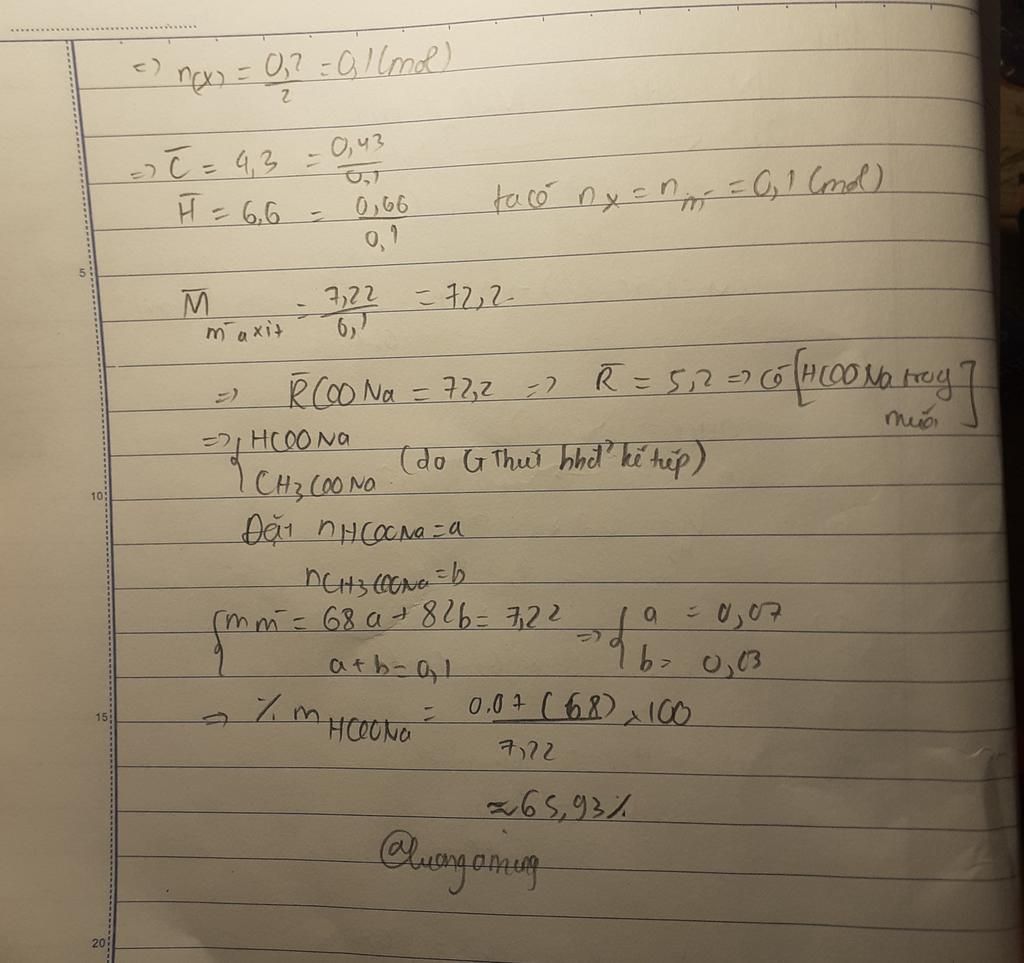 => n(x) = 0,2/2 = 0,1 (mol)
=> C̅ = 4,3 = 0,43/0,1
H̅ = 6,6 = 0,66/0,1 ta có n x = n m̄ = 0,1 (mol)
5
M̅ m̄ axit = 7,22/0,1 = 72,2
=> R̅COONa = 72,2 => R̅ = 5,2 => có [HCOONa trog muối]
=> { HCOONa
CH3COONa (do G Thuế hhđ² kế tiếp)
10
Đặt nHCOONa = a
nCH3COONa = b
{ m m̄ = 68a + 82b = 7,22 => { a = 0,07
a + b = 0,1 b = 0,03
15
=> % m HCOONa = 0.07 (68)/7,22 x 100
≈ 65,93%
20